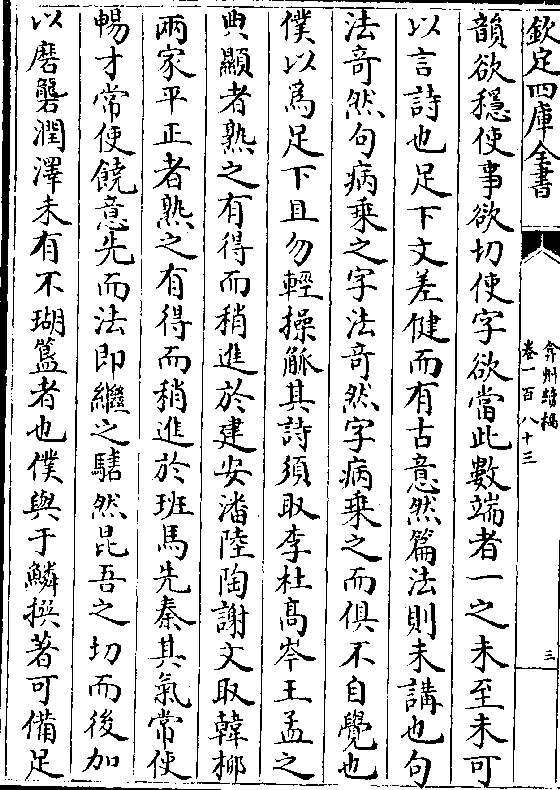 欽定四庫全書
弇州續稿
卷一百八十三
三
韻欲穩使事欲切使字欲當此數端者一之未至未可
以言詩也足下文差健而有古意然篇法則未講也句
法奇然句病乗之字法奇然字病乗之而俱不自覺也
僕以為足下且勿輕操觚其詩須取李杜髙岑王孟之
典顯者熟之有得而稍進於建安潘陸陶謝文取韓栁
兩家平正者熟之有得而稍進於班馬先秦其氣常使
暢才常使饒意先而法即繼之騞然昆吾之切而後加
以磨礱潤澤未有不瑚簋者也僕與于鱗撰著可備足